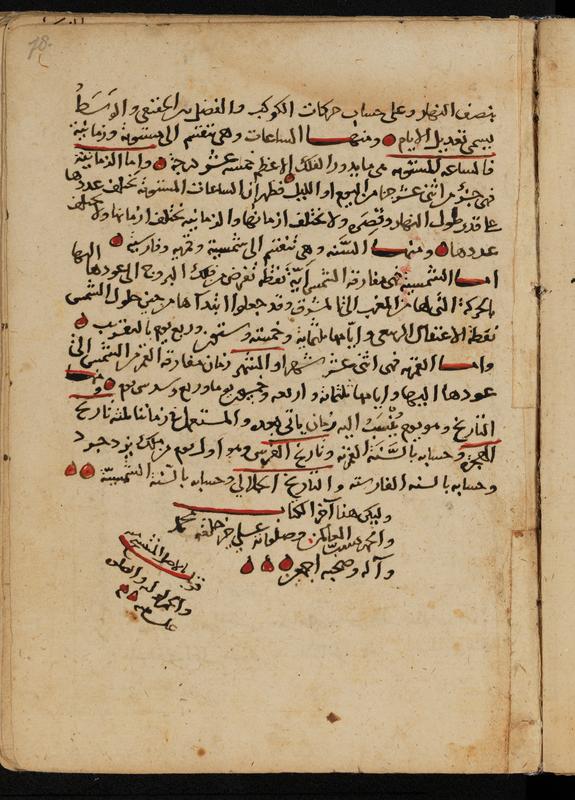 78.
نصف النهار وعلى حساب حركات الكوكب والفضل بين الحقيقي والوسط
يسمى تعديل الايام ومنها الساعات وهي تنقسم الى مستوية وزمانية
فالساعة المستوية هي ما يدور الفلك الاعظم خمسة عشر درجة واما الزمانية
فهي جزؤ من اثنى عشر جزءا من اليوم او الليل فظهر ان الساعات المستوية تختلف عددها
على قدر طول النهار وقصره ولا تختلف ازمانها والزمانية تختلف ازمانها ولا يختلف
عددها ومنها السنه وهي تنقسم الى شمسية وقمرية وفارسية
اما الشمسية فهي مفارقة الشمس اية نقطة تفرض من فلك البروج الى عودها اليها
بالحركة التي لها من المغرب الى المشرق وقد جعلوا ابتداها من حين حلول الشمس
نقطة الاعتدال الربيعي وايامها ثلثمائة وخمسة وستون وربع يوم بالتقريب
واما القمرية فهي اثنى عشر شهرا والشهر زمان مفارقة القمر من الشمس الى
عودها اليها وايامها ثلثمائة واربعة وخمسون يوما وربع وسدس يوم ومنها
التاريخ وهو يوم ينسب اليه زمان ياتي بعده والمستعمل في زماننا ثلثة تاريخ
الهجرة وحسابه بالسنة القمرية وتاريخ الفرس وهو اول يوم من ملك يزدجرد
وحسابه بالسنة الفارسية والتاريخ الجلالي وحسابه بالسنة الشمسية
وليكن هنا آخر الكتاب
والحمد لله رب العالمين وصلى الله على خير خلقه محمد
وآله وصحبه اجمعين
قوبل بالاصل